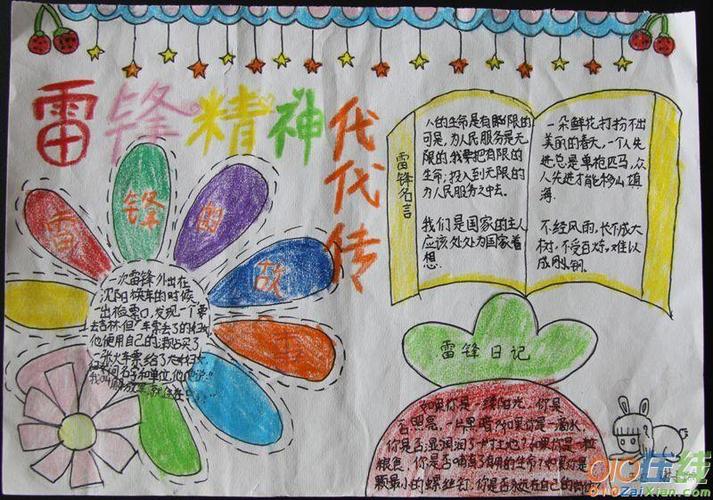 雷锋精神代代传
雷锋的故事
一次雷锋外出在
沈阳换车的时候
一出检票口,发现一个带
他使用自己的
一张火车票
雷锋名言
人的生命是有限的
可是,为人民服务是无
限的,我要把有限的
生命,投入到无限的
为人民服务之中去。
我们是国家的主人
应该处处为国家着
想.
一朵鲜花打扮不出
美丽的春天,一个人先
进总是单枪匹马,众
人先进才能移山填
海.
不经风雨,长不成大
树,不受百炼,难以
成刚钢.
雷锋日记
如果你是一缕阳光,你是
否照亮一片黑暗?如果你是一滴水,
你是否滋润了一寸土地?如果你是一粒
粮食,你是否哺育了有用的生命?如果你是一
颗最小的螺丝钉,你是否永远在自己的岗位?
910在线
910ZaiXian.com